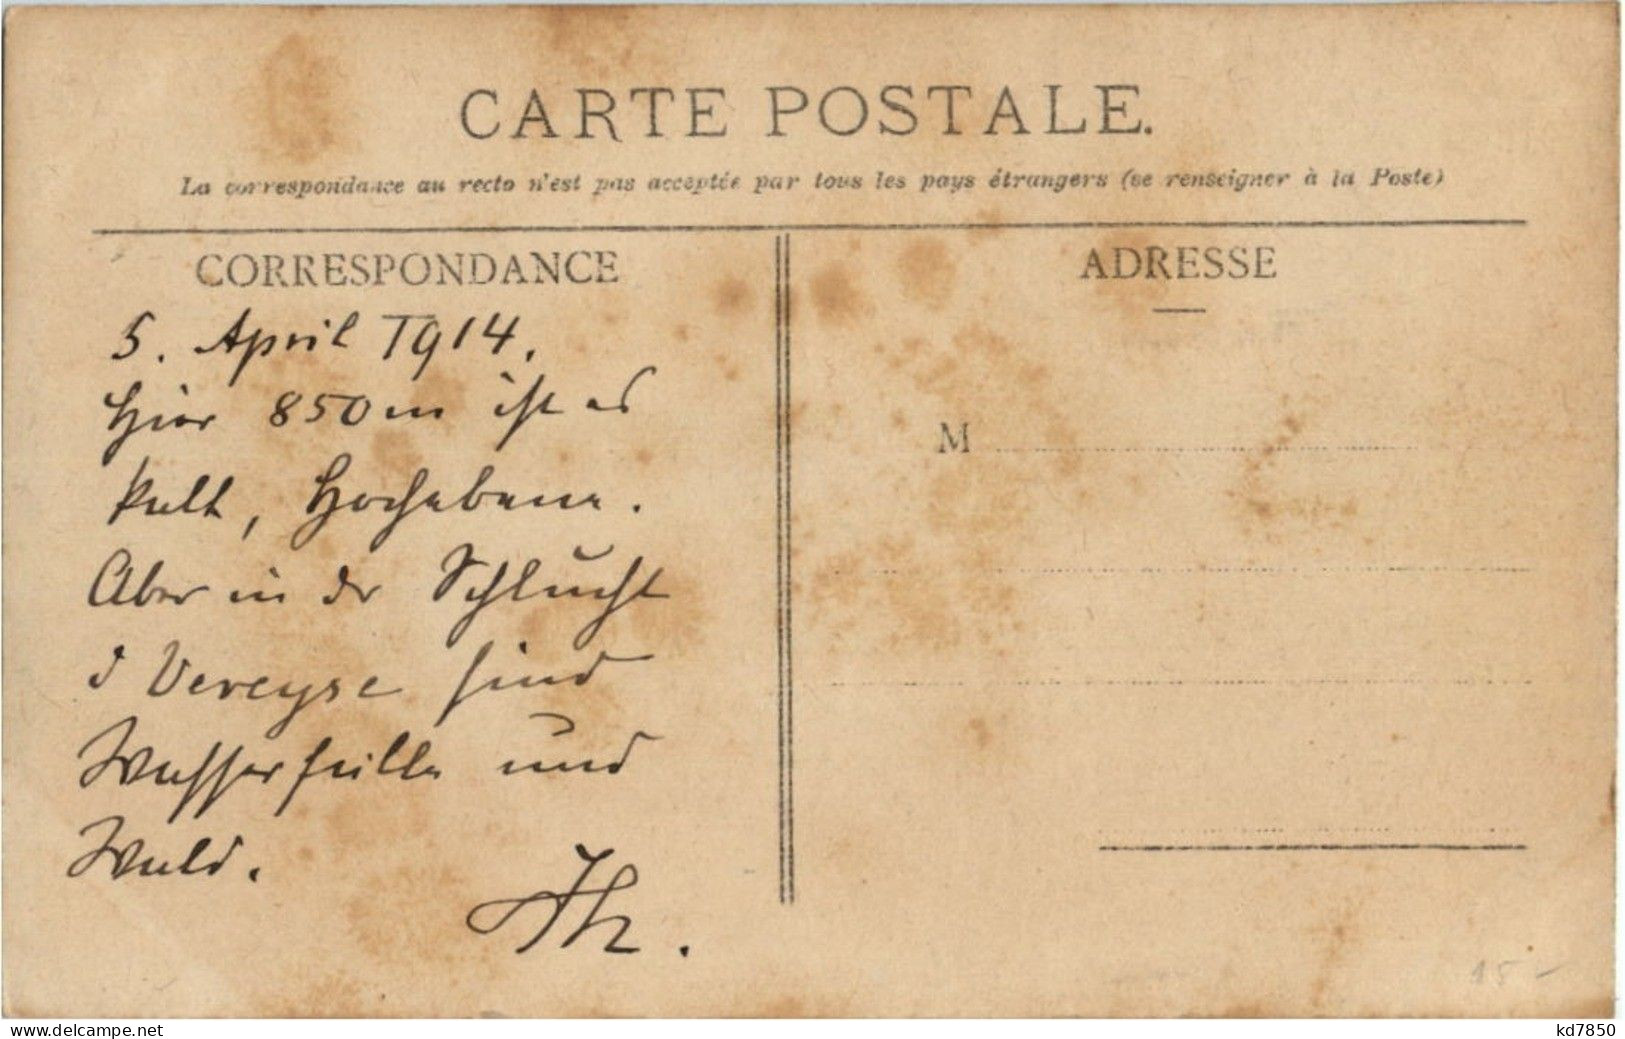 CARTE POSTALE.
La correspondance au recto n'est pas acceptée par tous les pays étrangers (se renseigner à la Poste)
CORRESPONDANCE
ADRESSE
5. April 1914.
Hier 850 m ist es
kalt, Hochebene.
Aber in der Schlucht
d Vereyse sind
Wasserfälle und
Wald.
Th.
M
15 -
kd7850